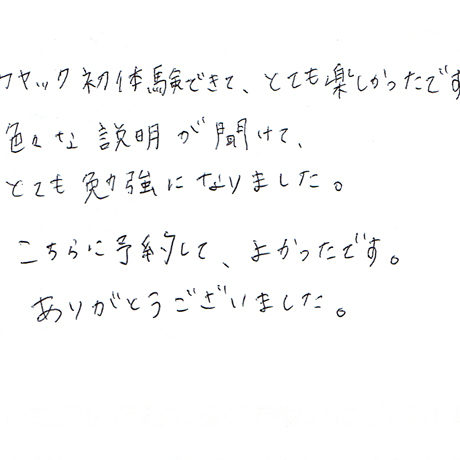 カヤック初体験できて、とても楽しかったです
色々な説明が聞けて、
とても勉強になりました。
こちらに予約して、よかったです。
ありがとうございました。